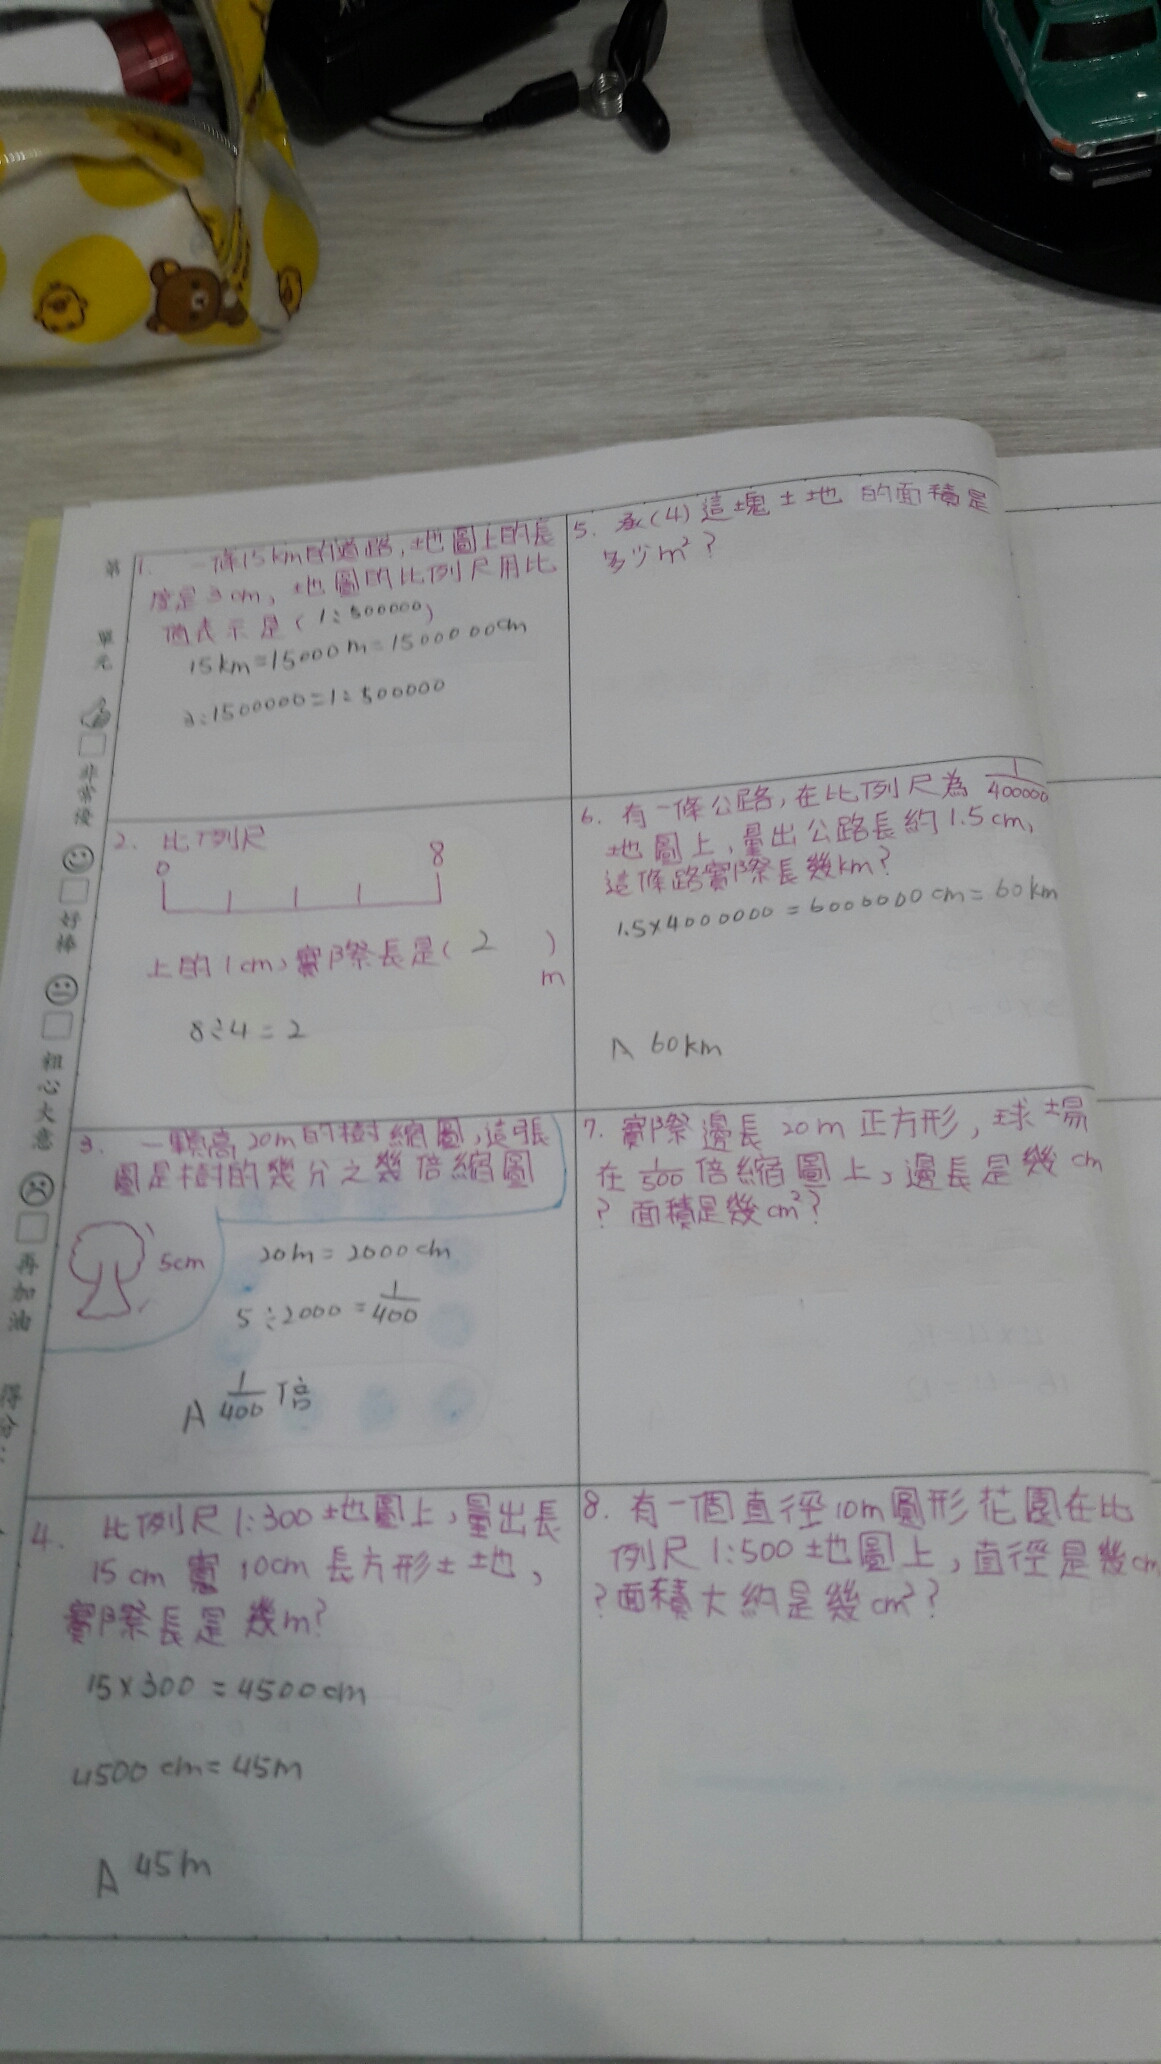 第
單
元
非
常
優
好
棒
粗
心
大
意
再
加
油
1. 一條15km的道路,地圖上的長
度是3cm,地圖的比例尺用比
值表示是(1:500000)
15km=15000m=1500000cm
3:1500000=1:500000
2. 比例尺
0 8
上的1cm,實際長是( 2 )
m
8÷4=2
3. 一顆高20m的樹縮圖,這張
圖是樹的幾分之幾倍縮圖
5cm
20m=2000cm
5÷2000=1/400
A 1/400倍
4. 比例尺1:300地圖上,量出長
15cm寬10cm長方形土地,
實際長是幾m?
15×300=4500cm
4500cm=45m
A 45m
5. 承(4)這塊土地的面積是
多少m²?
6. 有一條公路,在比例尺為1/400000
地圖上,量出公路長約1.5cm,
這條路實際長幾km?
1.5×4000000=6000000cm=60km
A 60km
7. 實際邊長20m正方形,球場
在1/500倍縮圖上,邊長是幾cm
?面積是幾cm²?
8. 有一個直徑10m圓形花園在比
例尺1:500地圖上,直徑是幾cm
?面積大約是幾cm²?